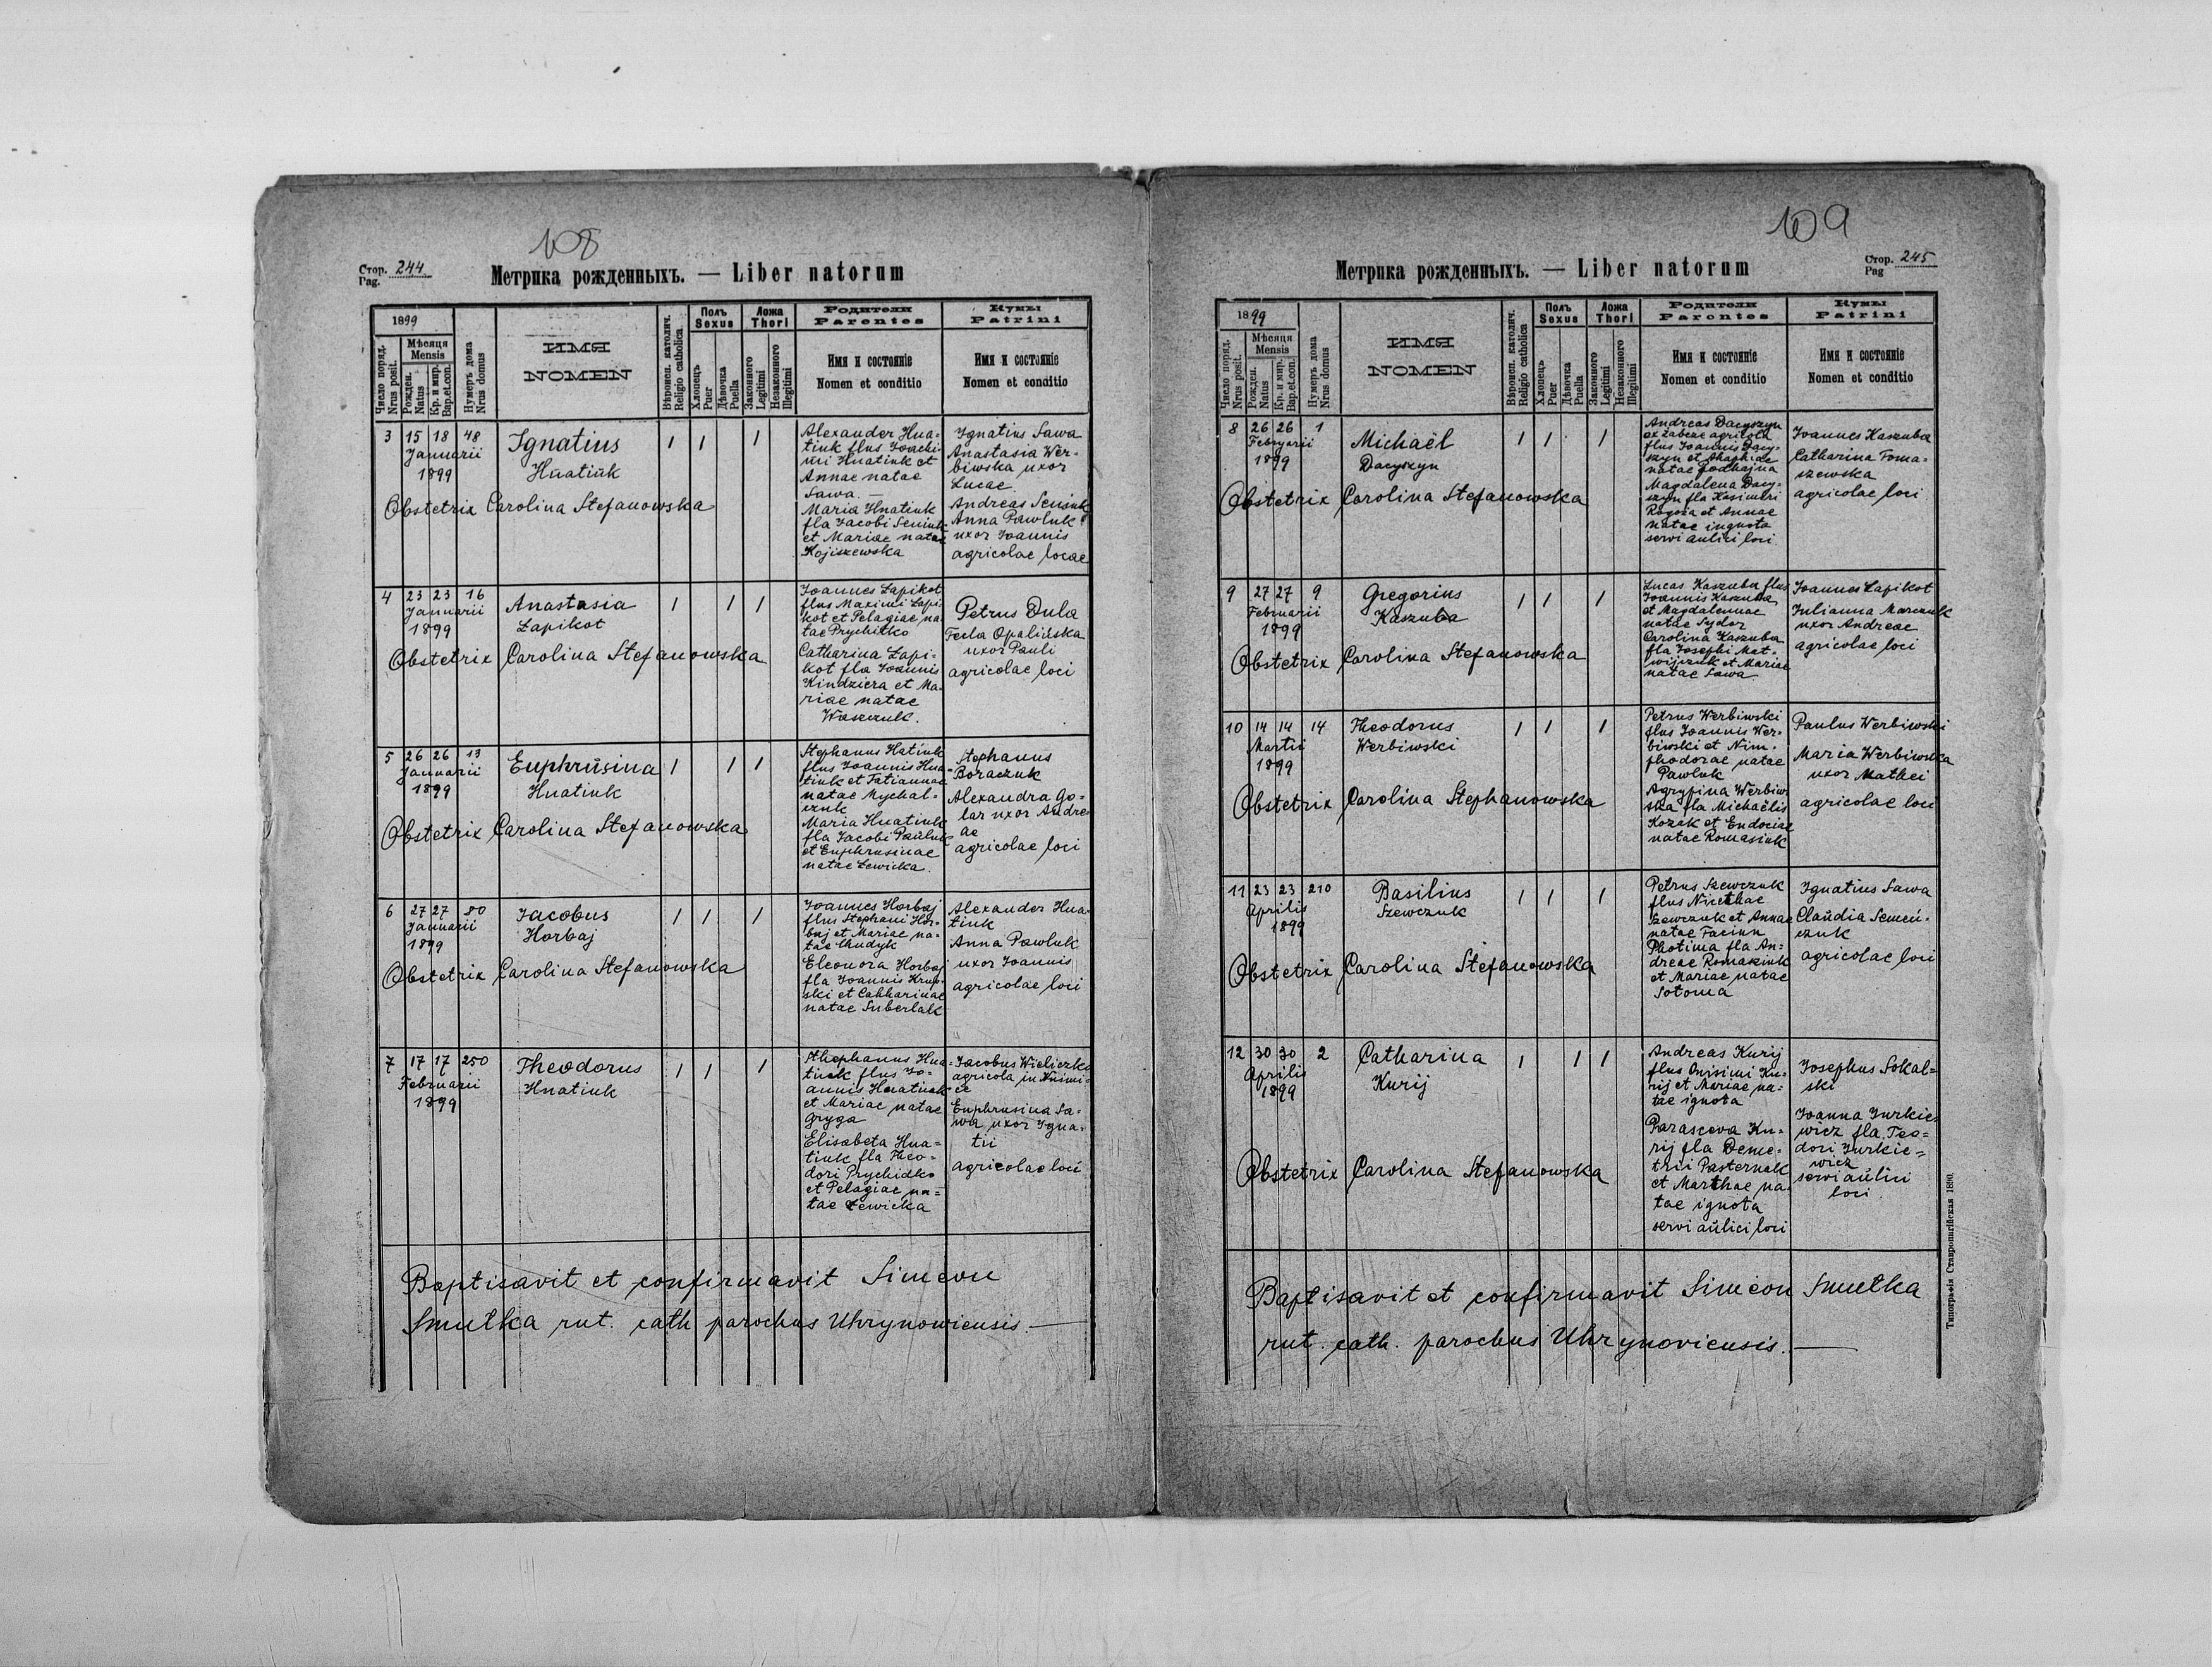 108
Стор. 244
Pag.
Метрика рожденныхъ. — Liber natorum
1899
Число поряд.
Nrus posit.
Мѣсяця
Mensis
Рожден.
Natus
Кр. и мир.
Bap.et.con.
Нумеръ дома
Nrus domus
ИМЯ
NOMEN
Вѣроисп. католич.
Religio catholica
Полъ
Sexus
Хлопецъ
Puer
Дѣвочка
Puella
Ложа
Thori
Законного
Legitimi
Незаконного
Illegitimi
Родители
Parentes
Имя и состоянiе
Nomen et conditio
Кумы
Patrini
Имя и состоянiе
Nomen et conditio
3 15 18 48
Januarii
1899
Ignatius
Hnatiuk
1 1 1
Alexander Hna-
tiuk flus Joachi-
mi Hnatiuk et
Annae natae
Sawa. —
Maria Hnatiuk
fla Jacobi Seniuk
et Mariae natae
Kojiszewska
Ignatius Sawa
Anastasia Wer-
biwska uxor
Lucae
Andreas Seniuk
Anna Pawluk
uxor Joannis
agricolae locae
Obstetrix Carolina Stefanowska
4 23 23 16
Januarii
1899
Anastasia
Łapikot
1 1 1
Joannes Łapikot
flus Maximi Łapi
kot et Pelagiae na
tae Prychitko
Catharina Łapi-
kot fla Joannis
Kindziera et Ma-
riae natae
Waszczuk.
Petrus Dula
Fecla Opalińska
uxor Pauli
agricolae loci
Obstetrix Carolina Stefanowska
5 26 26 13
Januarii
1899
Euphrusina
Hnatiuk
1 1 1
Stephanus Hatiuk
flus Joannis Hna-
tiuk et Tatiannae
natae Mychal-
czuk
Maria Hnatiuk
fla Jacobi Pauluk
et Euphrusinae
natae Lewicka.
Stephanus
Boraczuk
Alexandra Go-
lar uxor Andre
ae
agricolae loci
Obstetrix Carolina Stefanowska
6 27 27 80
Januarii
1899
Jacobus
Horbaj
1 1 1
Joannes Horbaj
flus Stephani Hor-
baj et Mariae na-
tae Chudyk
Eleonora Horbaj
fla Joannis Krup-
ski et Cahharinae
natae Suberlak
Alexander Hna-
tiuk
Anna Pawluk
uxor Joannis
agricolae loci
Obstetrix Carolina Stefanowska
7 17 17 250
Februarii
1899
Theodorus
Hnatiuk
1 1 1
Sthephanus Hna-
tiuk flus Jo-
annis Hnatiuk
et Mariae natae
Gryga
Elisabeta Hna-
tiuk fla Theo-
dori Prychidko
et Pelagiae na-
tae Lewicka
Jacobus Wieliczko
agricola in
Euphrusina Sa-
wa uxor Igna-
tii
agricolae loci
Baptisavit et confirmavit Simeon
Smułka rut. cath parochus Uhrynowiensis. —
109
Метрика рожденныхъ. — Liber natorum
Стор. 245
Pag
1899
Число поряд.
Nrus posit.
Мѣсяця
Mensis
Рожден.
Natus
Кр. и мир.
Bap.et.con.
Нумеръ дома
Nrus domus
ИМЯ
NOMEN
Вѣроисп. католич.
Religio catholica
Полъ
Sexus
Хлопецъ
Puer
Дѣвочка
Puella
Ложа
Thori
Законного
Legitimi
Незаконного
Illegitimi
Родители
Parentes
Имя и состоянiе
Nomen et conditio
Кумы
Patrini
Имя и состоянiе
Nomen et conditio
8 26 26 1
Februarii
1899
Michaël
Dacyszyn
1 1 1
Andreas Dacyszyn
ex Zabcze agricola
flus Joannis Dacy-
szyn et Ahaphiae
natae Podhajna
Magdalena Dacy-
szyn fla Kasimiri
Rogoza et Annae
natae ingnota
servi aulici loci
Joannes Kaszuba
Catharina Toma-
szewska
agricolae loci
Obstetrix Carolina Stefanowska
9 27 27 9
Februarii
1899
Gregorius
Kaszuba
1 1 1
Lucas Kaszuba flus
Joannis Kaszuba
et Magdalennae
natae Sydor
Carolina Kaszuba
fla Josephi Mat-
wijczuk et Mariae
natae Sawa
Joannes Łapikot
Julianna Marczuk
uxor Andreae
agricolae loci
Obstetrix Carolina Stefanowska
10 14 14 14
Martii
1899
Theodorus
Werbiwski
1 1 1
Petrus Werbiwski
flus Joannis Wer-
biwski et Nim-
phodorae natae
Pawluk
Agrypina Werbiw-
ska fla Michaëlis
Kozak et Eudociae
natae Romasiuk
Paulus Werbiwski
Maria Werbiwska
uxor Mathei
agricolae loci
Obstetrix Carolina Stephanowska
11 23 23 210
Aprilis
1899
Basilius
Szewczuk
1 1 1
Petrus Szewczuk
flus Nicethae
Szewczuk et Annae
natae Faciun
Photima fla An-
dreae Romasiuk
et Mariae natae
Sotoma
Ignatius Sawa
Claudia Semen-
czuk
agricolae loci
Obstetrix Carolina Stefanowska
12 30 30 2
Aprilis
1899
Catharina
Kurij
1 1 1
Andreas Kurij
flus Onisimi Ku-
rij et Mariae na-
tae ignota
Parasceva Ku-
rij fla Deme-
trii Pasternak
et Marthae na-
tae ignota
servi aulici loci
Josephus Sokal-
ski
Joanna Jurkie-
wicz fla Teo-
dori Jurkie-
wicz
servi aulici
loci
Obstetrix Carolina Stefanowska
Baptisavit et confirmavit Simeon Smułka
rut. cath. parochus Uhrynoviensis. —
Типографiя Ставропигiйская 1890